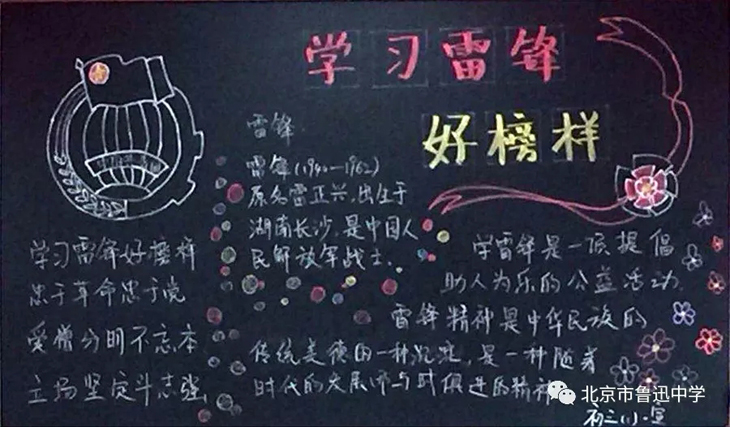 学习雷锋
好榜样
学习雷锋好榜样
忠于革命忠于党
爱憎分明不忘本
立场坚定斗志强
雷锋
雷锋(1940—1962)
原名雷正兴,出生于
湖南长沙,是中国人
民解放军战士.
学雷锋是一项提倡
助人为乐的公益活动.
雷锋精神是中华民族的
传统美德的一种沉淀,是一种随着
时代的发展而与时俱进的精神
初三(1)·宣
北京市鲁迅中学